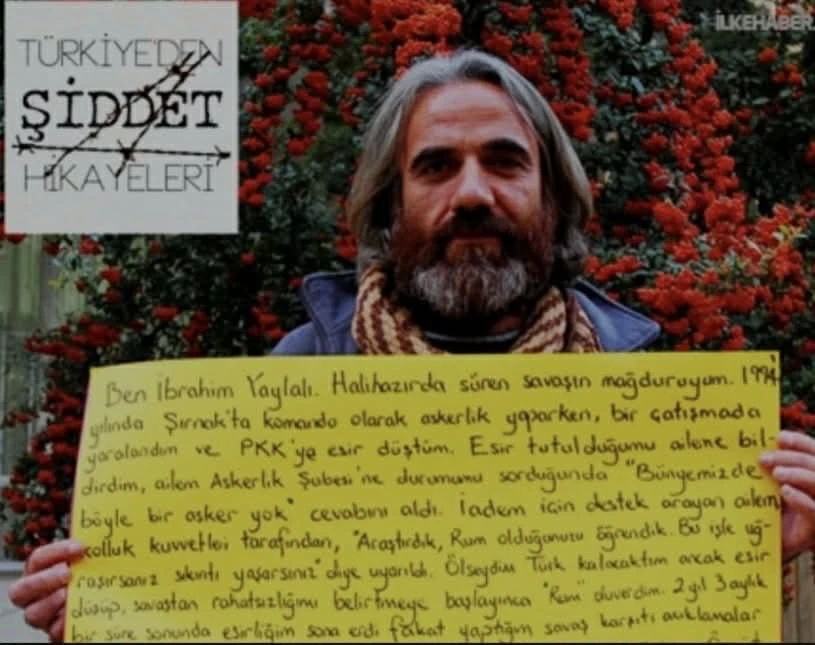 TÜRKİYE'DEN
ŞİDDET
HİKAYELERİ
İLKEHABER
Ben İbrahim Yaylalı. Halihazırda süren savaşın mağduruyum. 1994
yılında Şırnak'ta komando olarak askerlik yaparken, bir çatışmada
yaralandım ve PKK'ya esir düştüm. Esir tutulduğumu aileme bil-
dirdim, ailem Askerlik Şubesi'ne durumumu sorduğunda "Bünyemizde
böyle bir asker yok" cevabını aldı. İadem için destek arayan ailem,
kolluk kuvvetleri tarafından, "Araştırdık, Rum olduğunuzu öğrendik. Bu işle uğ-
raşırsanız sıkıntı yaşarsınız" diye uyarıldı. Ölseydim Türk kalacaktım ancak esir
düşüp, savaştan rahatsızlığımı belirtmeye başlayınca "Rum" oluverdim. 2 yıl 3 aylık
bir süre sonunda esirliğim sona erdi fakat yaptığım savaş karşıtı açıklamalar